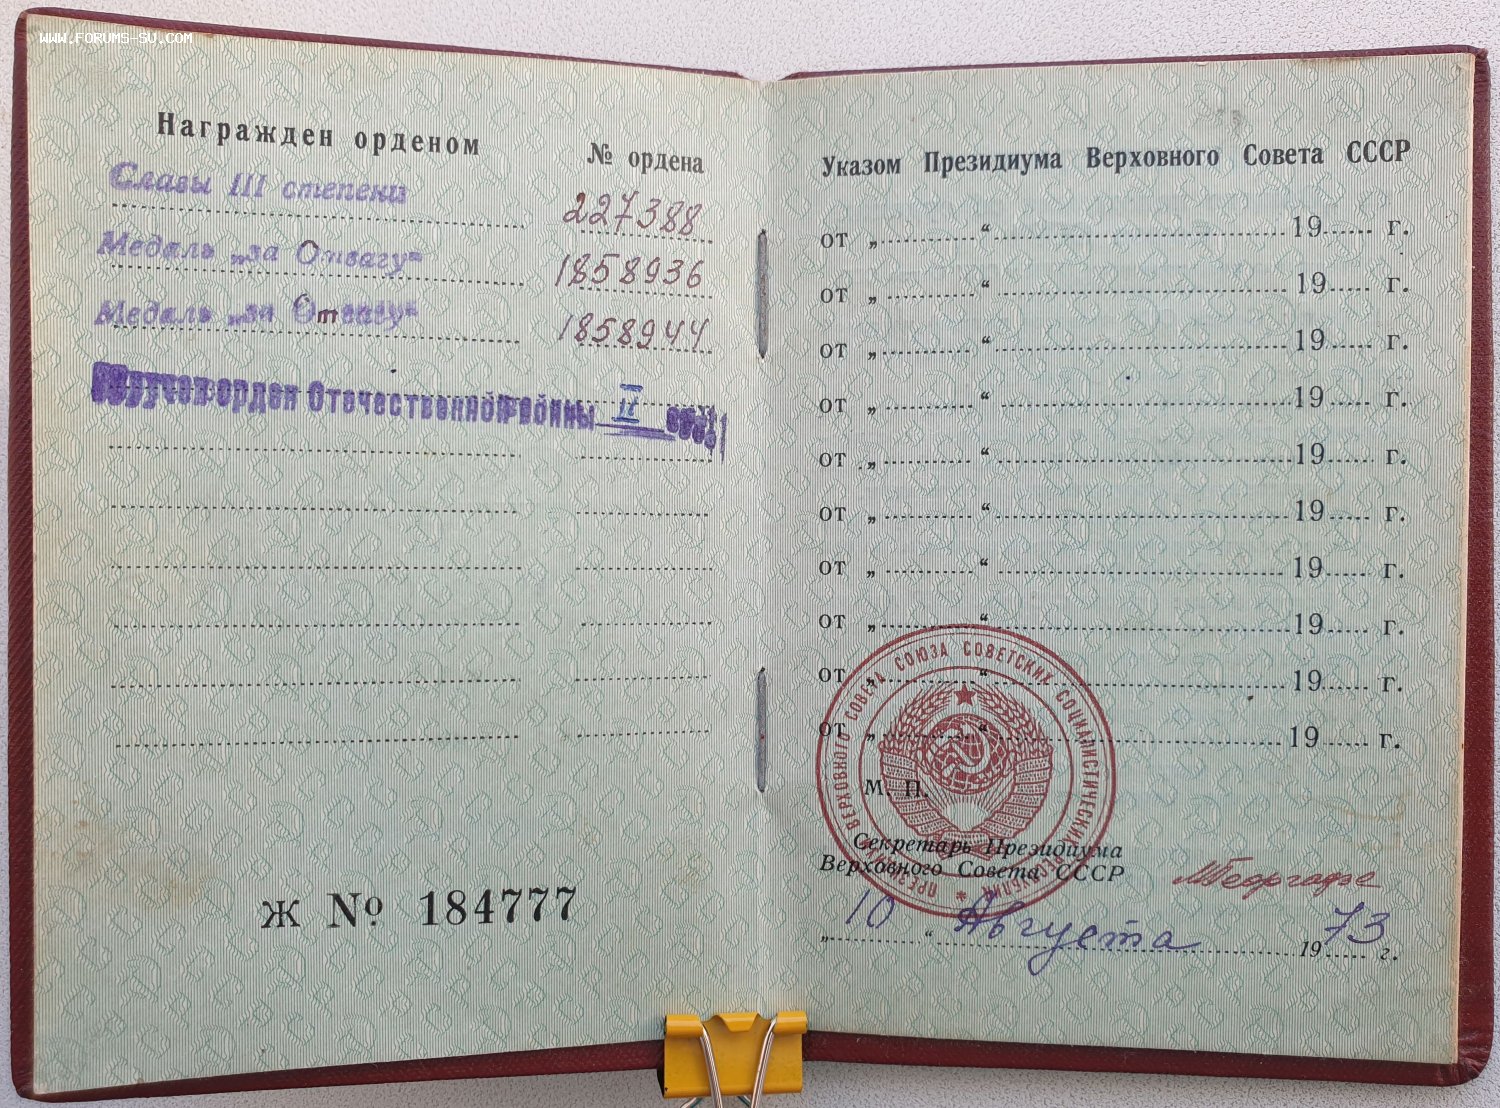 WWW.FORUMS-SU.COM
Награжден орденом
№ ордена
Славы III степени
227388
Медаль „за Отвагу“
1858936
Медаль „за Отвагу“
1858944
орден Отечественной войны II
Ж № 184777
Указом Президиума Верховного Совета СССР
от „ “ 19 г.
от „ “ 19 г.
от „ “ 19 г.
от „ “ 19 г.
от „ “ 19 г.
от „ “ 19 г.
от „ “ 19 г.
от „ “ 19 г.
от „ “ 19 г.
от „ “ 19 г.
ПРЕЗИДИУМ ВЕРХОВНОГО СОВЕТА СОЮЗА СОВЕТСКИХ СОЦИАЛИСТИЧЕСКИХ РЕСПУБЛИК
М. П.
Секретарь Президиума
Верховного Совета СССР
МГеоргадзе
„10“ Августа 1973 г.